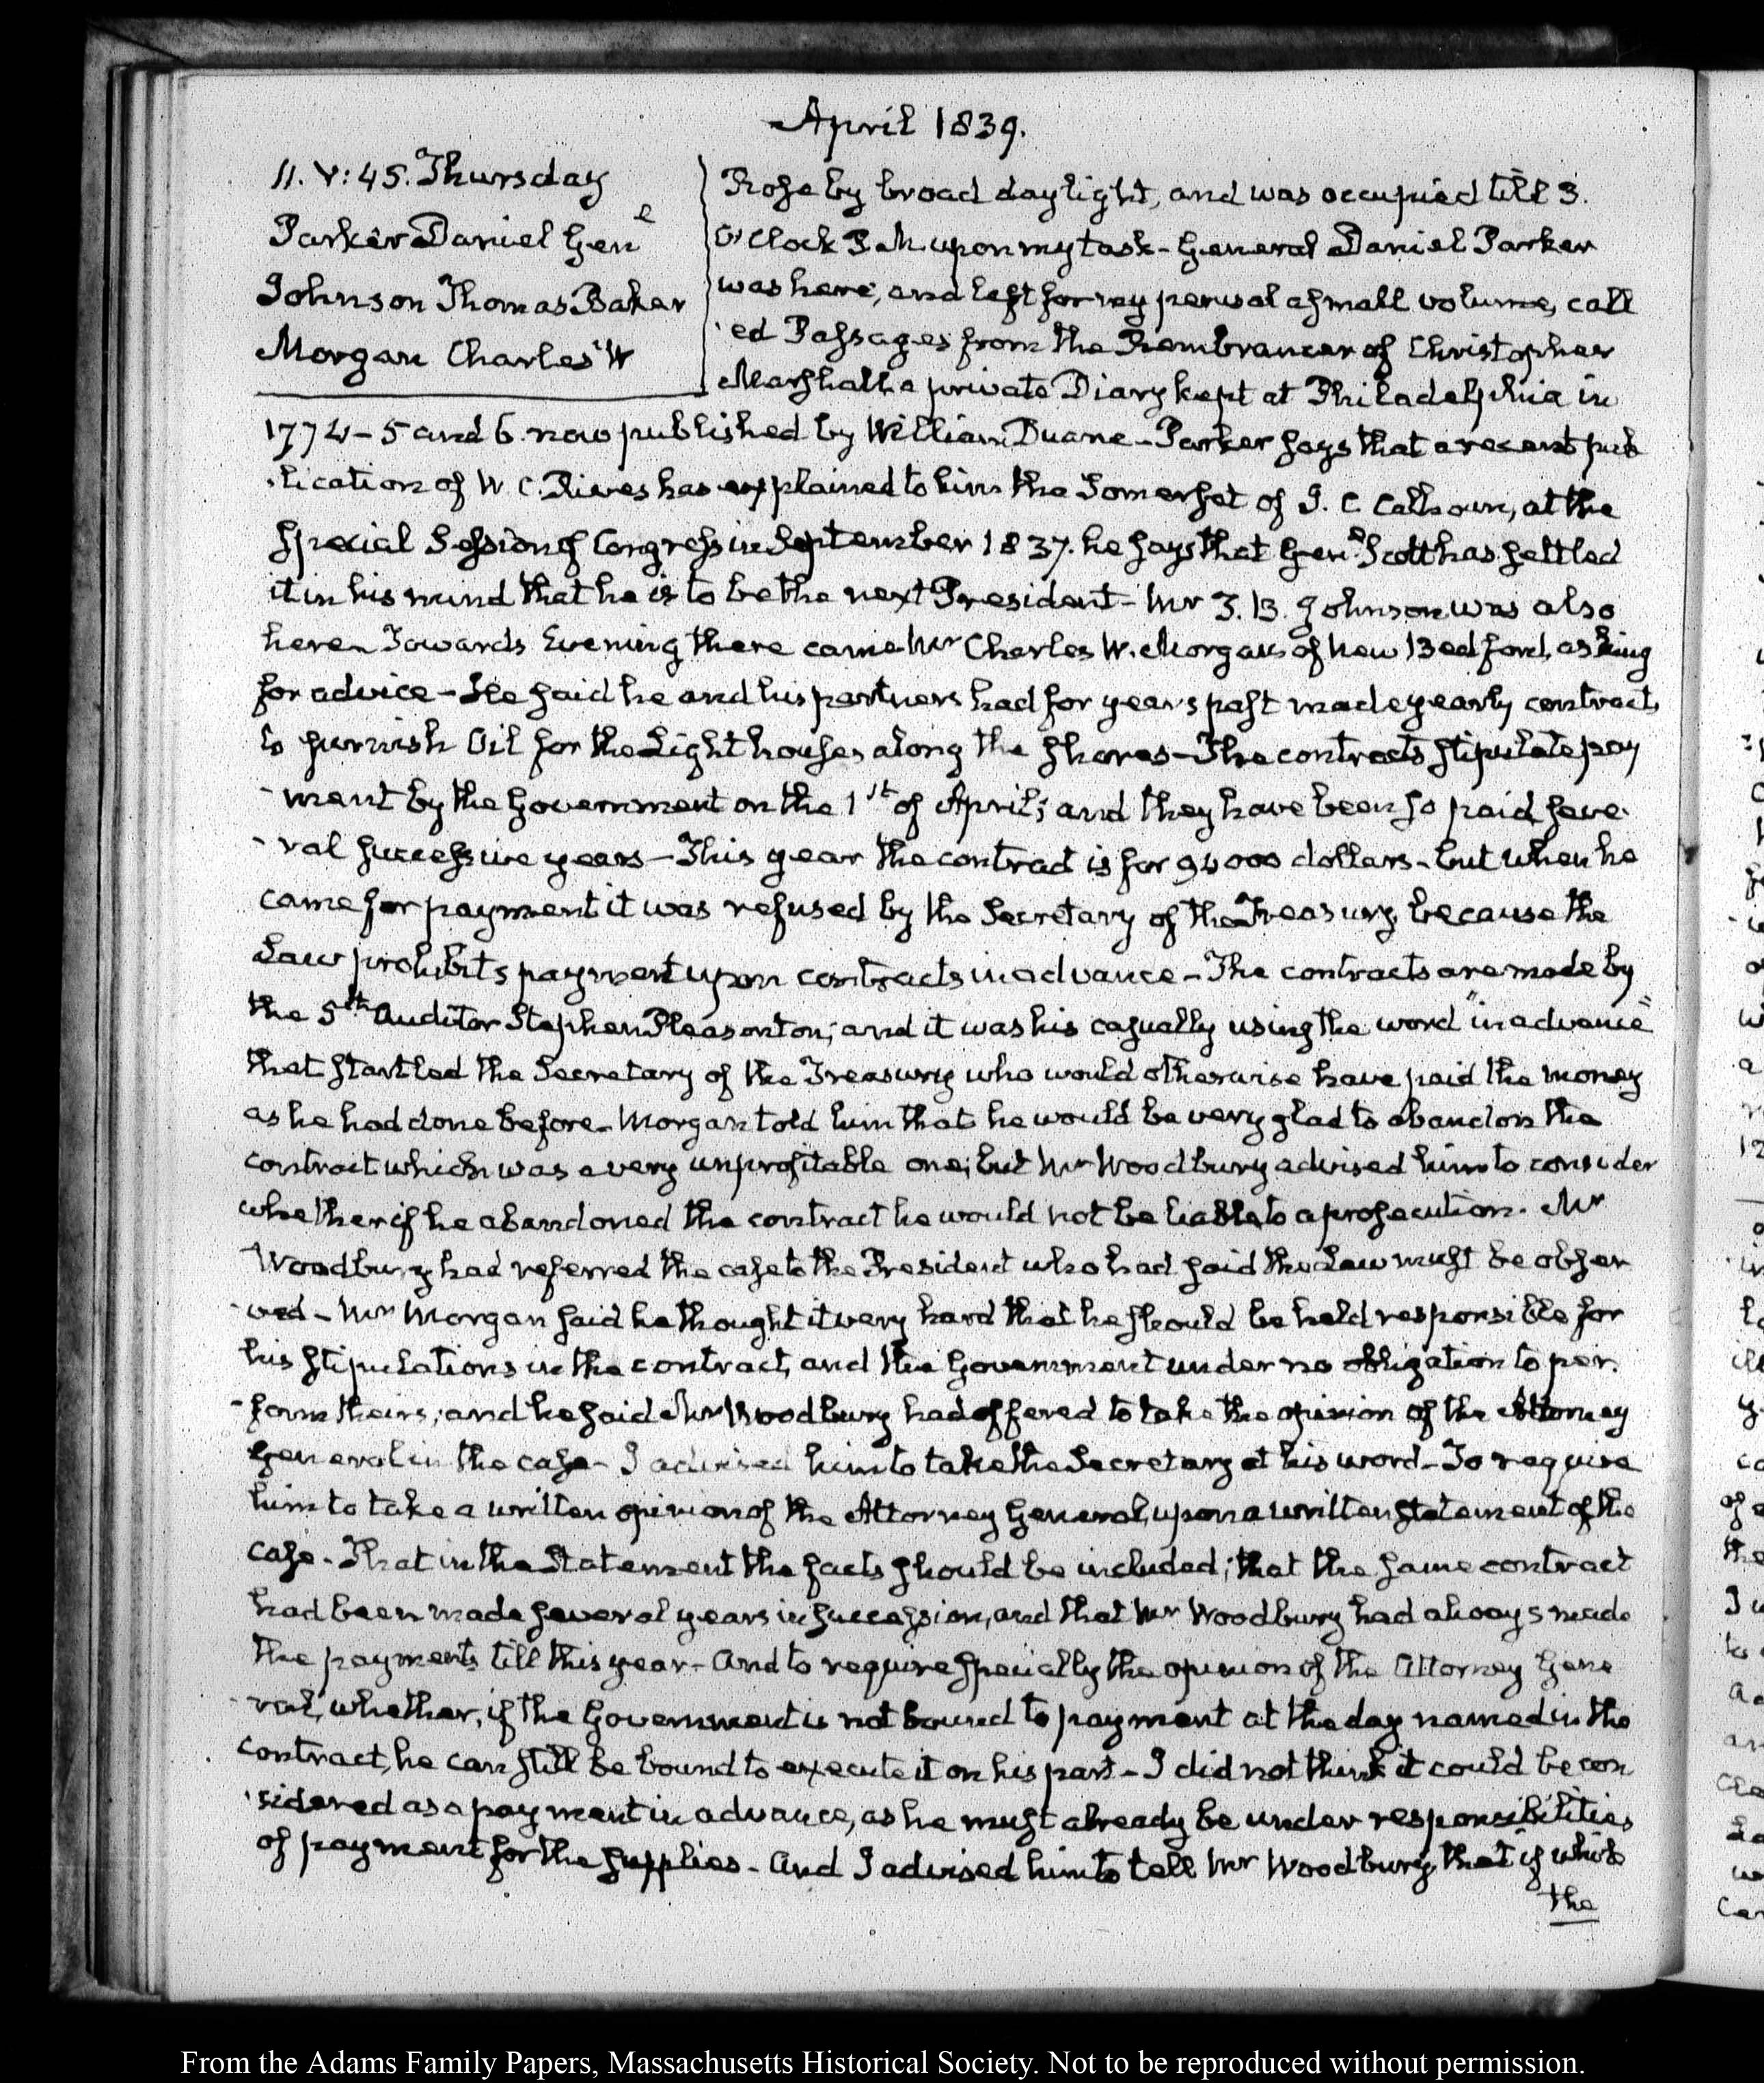 April 1839.
11. V:45. Thursday
Parker Daniel Genl
Johnson Thomas Baker
Morgan Charles W
Rose by broad daylight, and was occupied till 3.
O'Clock P.M upon my task - General Daniel Parker
was here, and left for my perusal a small volume, call
-ed Passages from the Remembrancer of Christopher
Marshall a private Diary kept at Philadelphia in
1774 - 5 and 6. now published by William Duane - Parker says that a recent pub
-lication of W. C. Rives has explained to him the Somerset of J. C. Calhoun, at the
special Session of Congress in September 1837. he says that Genl Scott has settled
it in his mind that he is to be the next President - Mr T. B. Johnson was also
here - Towards Evening there came Mr Charles W. Morgan of New Bedford, asking
for advice - He said he and his partners had for years past made yearly contracts
to furnish Oil for the Light houses along the shores - The contracts stipulate pay
-ment by the Government on the 1st of April; and they have been so paid seve
-ral successive years - This year the contract is for 94000 dollars - but when he
came for payment it was refused by the Secretary of the Treasury, because the
Law prohibits payment upon contracts in advance - The contracts are made by
the 5th Auditor Stephen Pleasonton; and it was his casually using the word "in advance"
that startled the Secretary of the Treasury who would otherwise have paid the money
as he had done before - Morgan told him that he would be very glad to abandon the
contract which was a very unprofitable one; but Mr Woodbury advised him to consider
whether if he abandoned the contract he would not be liable to a prosecution. Mr
Woodbury had referred the case to the President who had said the Law must be obser
-ved - Mr Morgan said he thought it very hard that he should be held responsible for
his stipulations in the contract, and the Government under no obligation to per.
-form theirs; and he said Mr Woodbury had offered to take the opinion of the Attorney
General in the case - I advised him to take the Secretary at his word - To require
him to take a written opinion of the Attorney General, upon a written statement of the
case - That in the Statement the facts should be included; that the same contract
had been made several years in succession, and that Mr Woodbury had always made
the payments till this year - And to require specially the opinion of the Attorney Gene
-ral, whether, if the Government is not bound to payment at the day named in the
contract, he can still be bound to execute it on his part - I did not think it could be con
-sidered as a payment in advance, as he must already be under responsibilities
of payment for the supplies - And I advised him to tell Mr Woodbury, that if
the
From the Adams Family Papers, Massachusetts Historical Society. Not to be reproduced without permission.